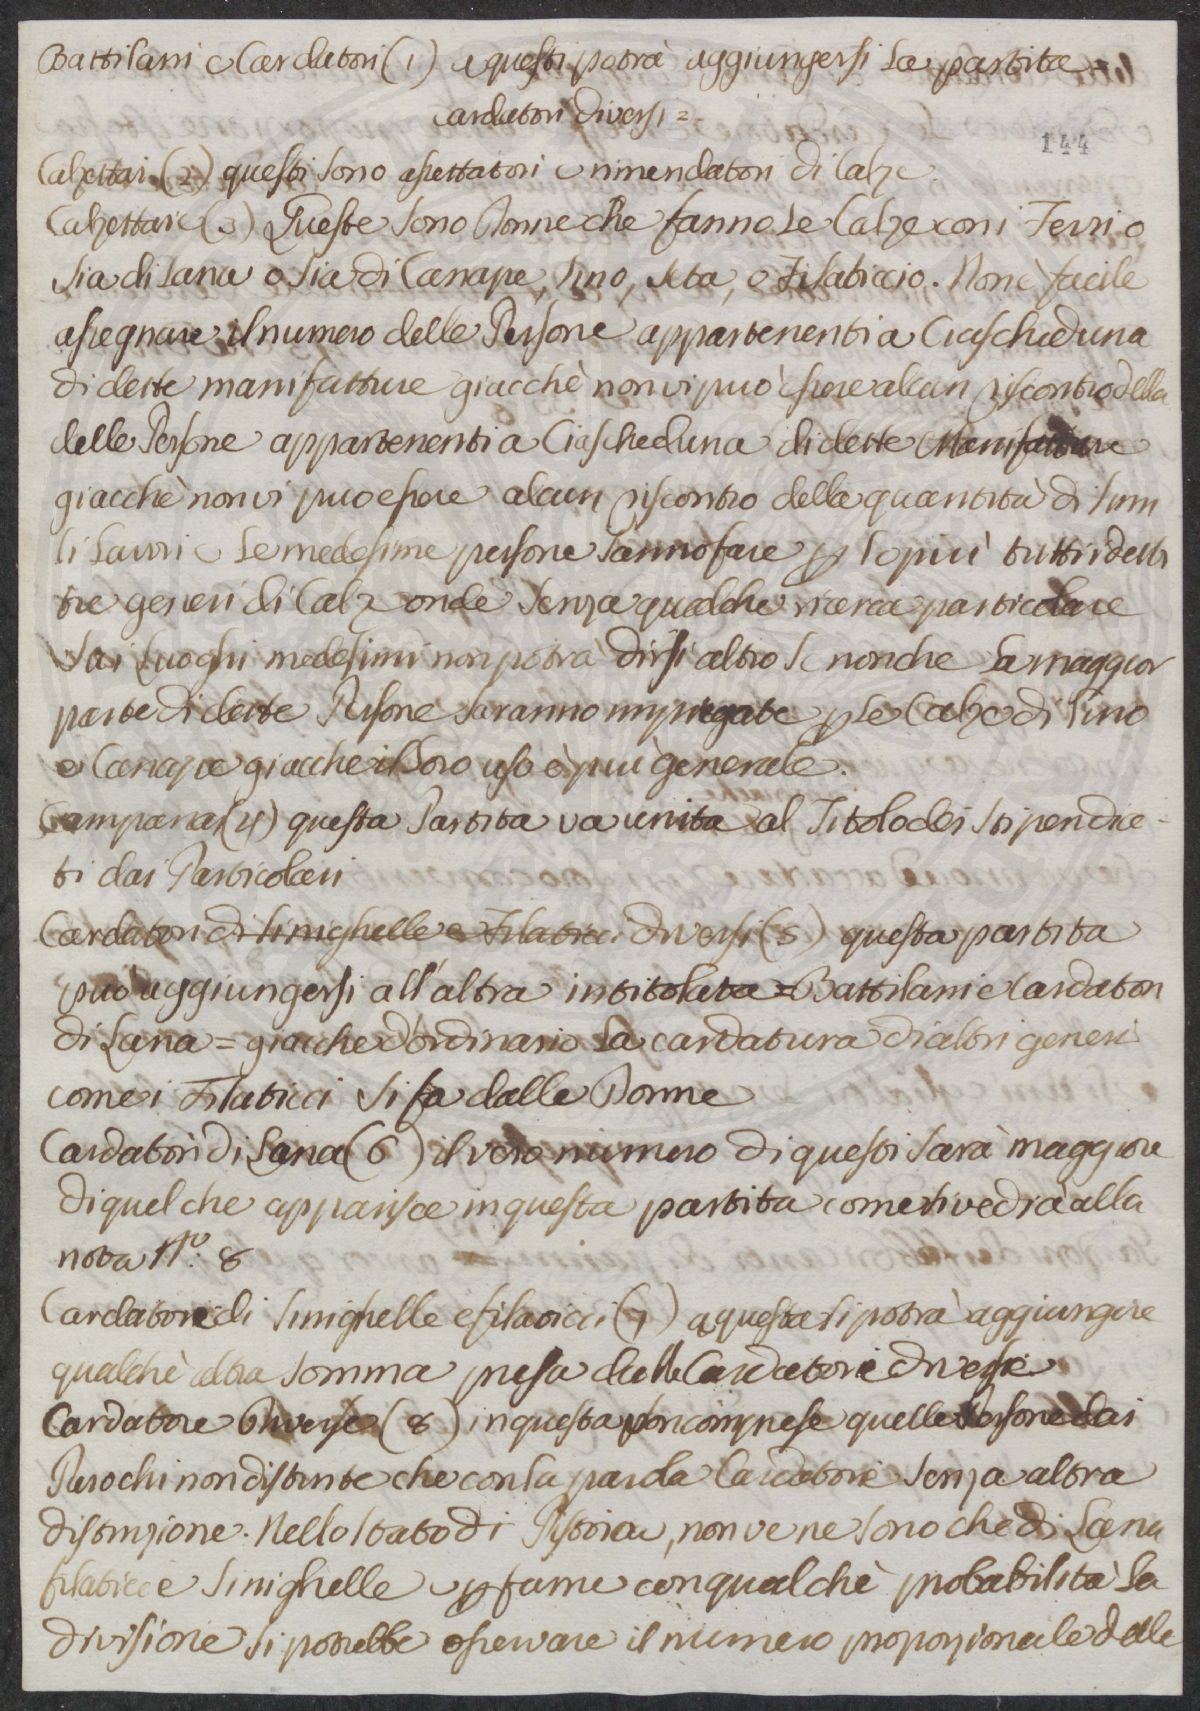 Battilani e Cardatori (1) a questi potrà aggiungersi la partita =
Cardatori diversi =
144
Calzettai (2) questi sono assettatori e rimendatori di Calze
Calzettaie (3) Queste sono Donne che fanno le Calze con i Ferri o
sia di Lana o sia di Canape, Lino, Seta, o Filaticcio. Non è facile
assegnare il numero delle Persone appartenenti a Ciascheduna
di dette manifatture giacchè non vi può essere alcun riscontro della
delle Persone appartenenti a Ciascheduna di dette Manifatture
giacchè non vi può essere alcun riscontro della quantità di simi
li Lavori e le medesime persone sanno fare p lo più tutti i detti
tre generi di Calze onde senza qualche ricerca particolare
su i Luoghi medesimi non potrà dirsi altro se non che la maggior
parte di dette Persone saranno impiegate p le Calze di Lino
e Canapa giacchè il Loro uso è più generale.
Campanaj (4) questa Partita va unita al Titolo dei Stipendia-
ti dai Particolari
Cardatori di sinighelle e Filaticci diversi (5) questa partita
può aggiungersi all'altra intitolata = Battilani e Cardatori
di Lana = giacche d'ordinario la cardatura di altri generi
come i Filaticci si fa dalle Donne
Cardatori di Lana (6) il vero numero di questi sarà maggiore
di quel che apparisce in questa partita come si vedrà alla
nota N.º 8
Cardatore di sinighelle e filaticci (7) a questa si potrà aggiungere
qualche altra somma presa dalle Cardatore diverse
Cardatore Diverse (8) in questa son comprese quelle Persone dai
Parochi non distinte che con la parola Cardatore senza altra
distinzione. Nello Stato di Pistoia, non ve ne sono che di Lana
filaticci e sinighelle e p farne con qualche probabilità la
divisione si potrebbe osservare il numero proporzionale delle